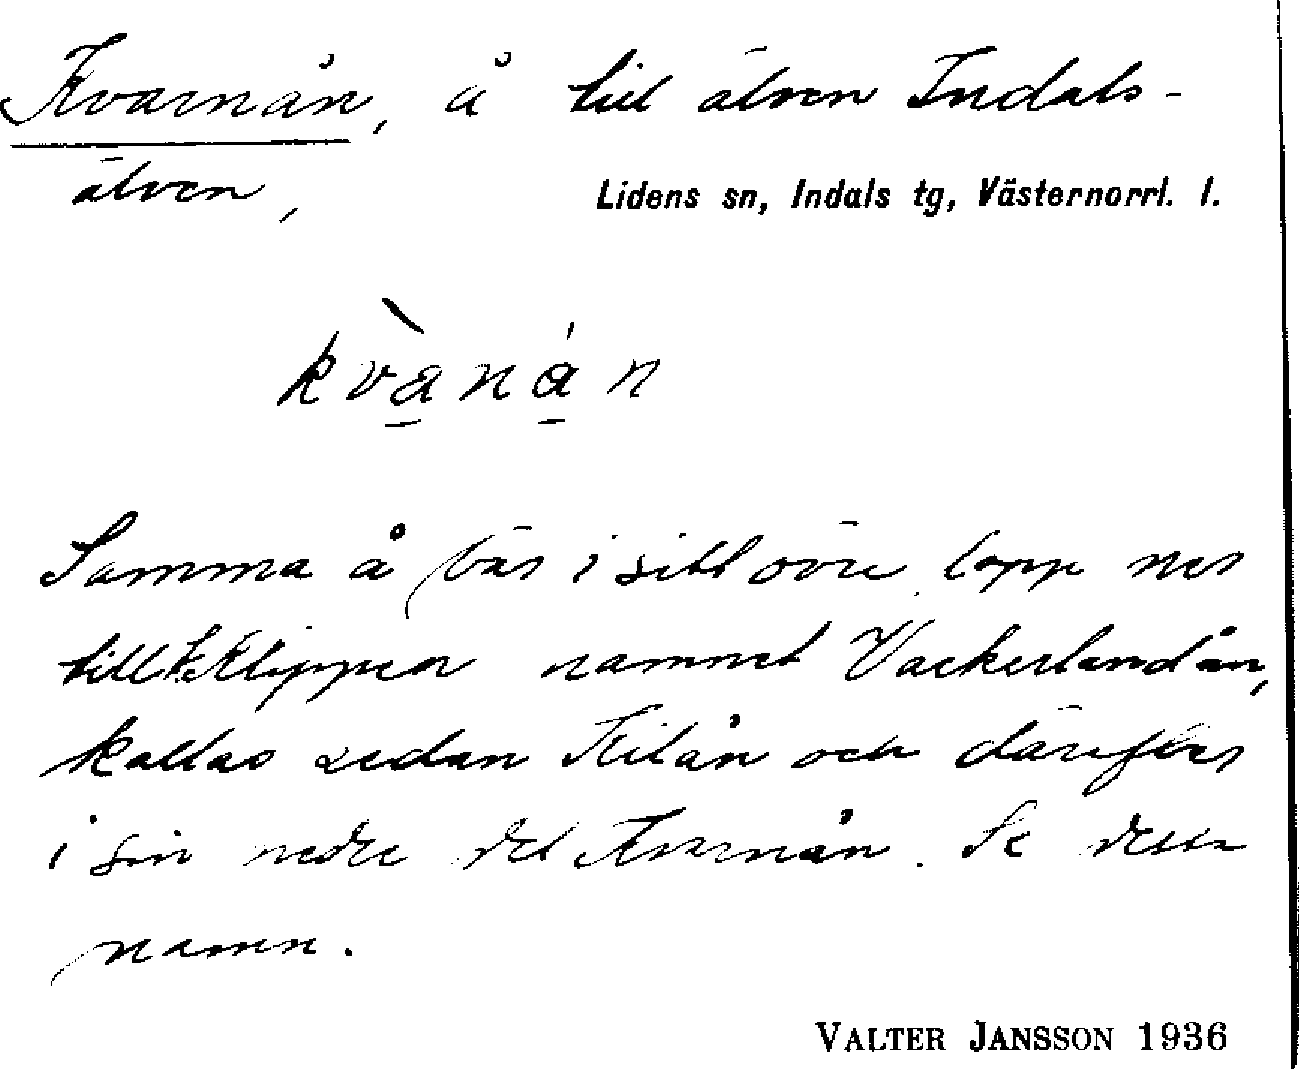 Kvarnån, å till älven Indals-
älven,
Lidens sn, Indals tg, Västernorrl. l.
kvànán
Samma å bär i sitt övre lopp ner
till Klippen namnet Vackerlandån,
kallas sedan Kilån och därefter
i sin nedre del Kvarnån. Se dessa
namn.
VALTER JANSSON 1936